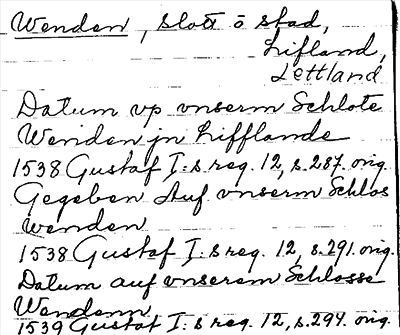 Wenden, slott o stad,
Lifland,
Lettland
Datum vp vnserm Schlote
Wenden jn Lifflande
1538 Gustaf I:s reg. 12, s.287. orig.
Gegeben Auf vnserm Schlos
Wenden
1538 Gustaf I:s reg. 12, s.291. orig.
Datum auf vnserem Schlosse
Wendenn.
1539 Gustaf I:s reg. 12, s.294. orig.